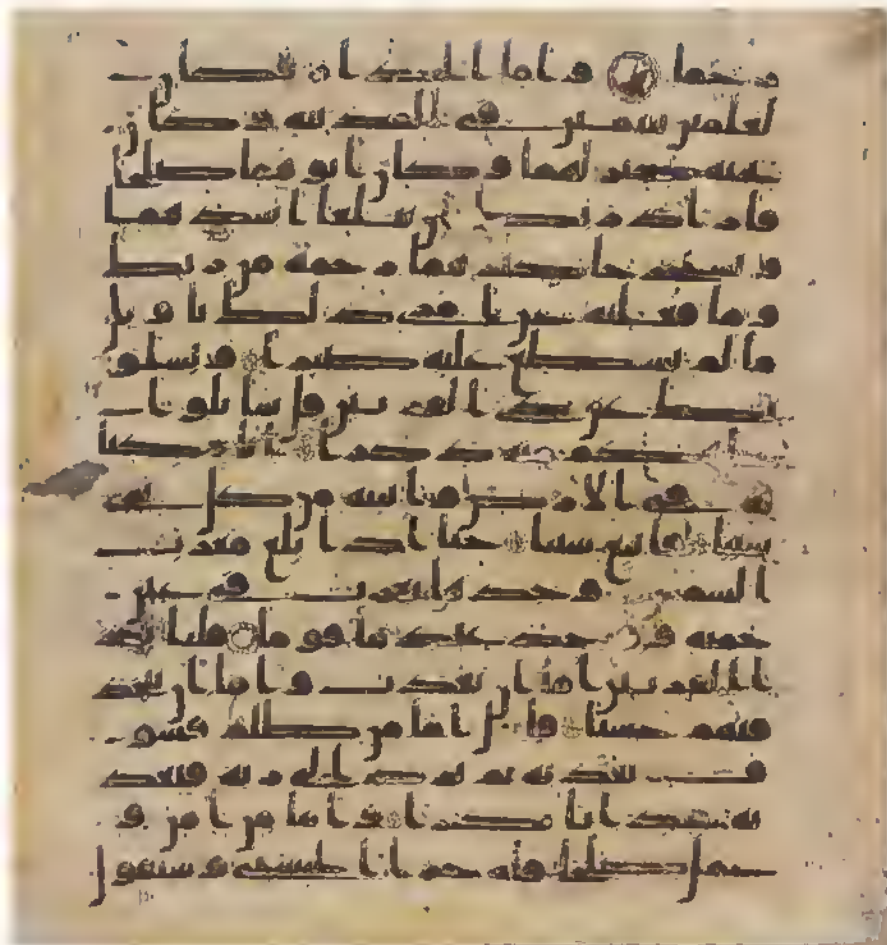 رحما واما الجدار فكان
لغلمين يتيمين في المدينه وكان
تحته كنز لهما وكان ابوهما صلحا
فاراد ربك ان يبلغا اشدهما
ويستخرجا كنزهما رحمة من ربك
وما فعلته عن امري ذلك تاويل
ما لم تسطع عليه صبرا ويسلو
نك عن ذي القرنين قل ساتلوا
عليكم منه ذكرا انا مكنا
له في الارض واتينه من كل شي
سببا فاتبع سببا حتى اذا بلغ مغرب
الشمس وجدها تغرب في عين
حميه ووجد عندها قوما قلنا يذا
القرنين اما ان تعذب واما ان تتخذ
فيهم حسنا قال اما من ظلم فسو
ف نعذبه ثم يرد الى ربه فيعذ
به عذابا نكرا واما من امن و
عمل صلحا فله جزا الحسنى وسنقول